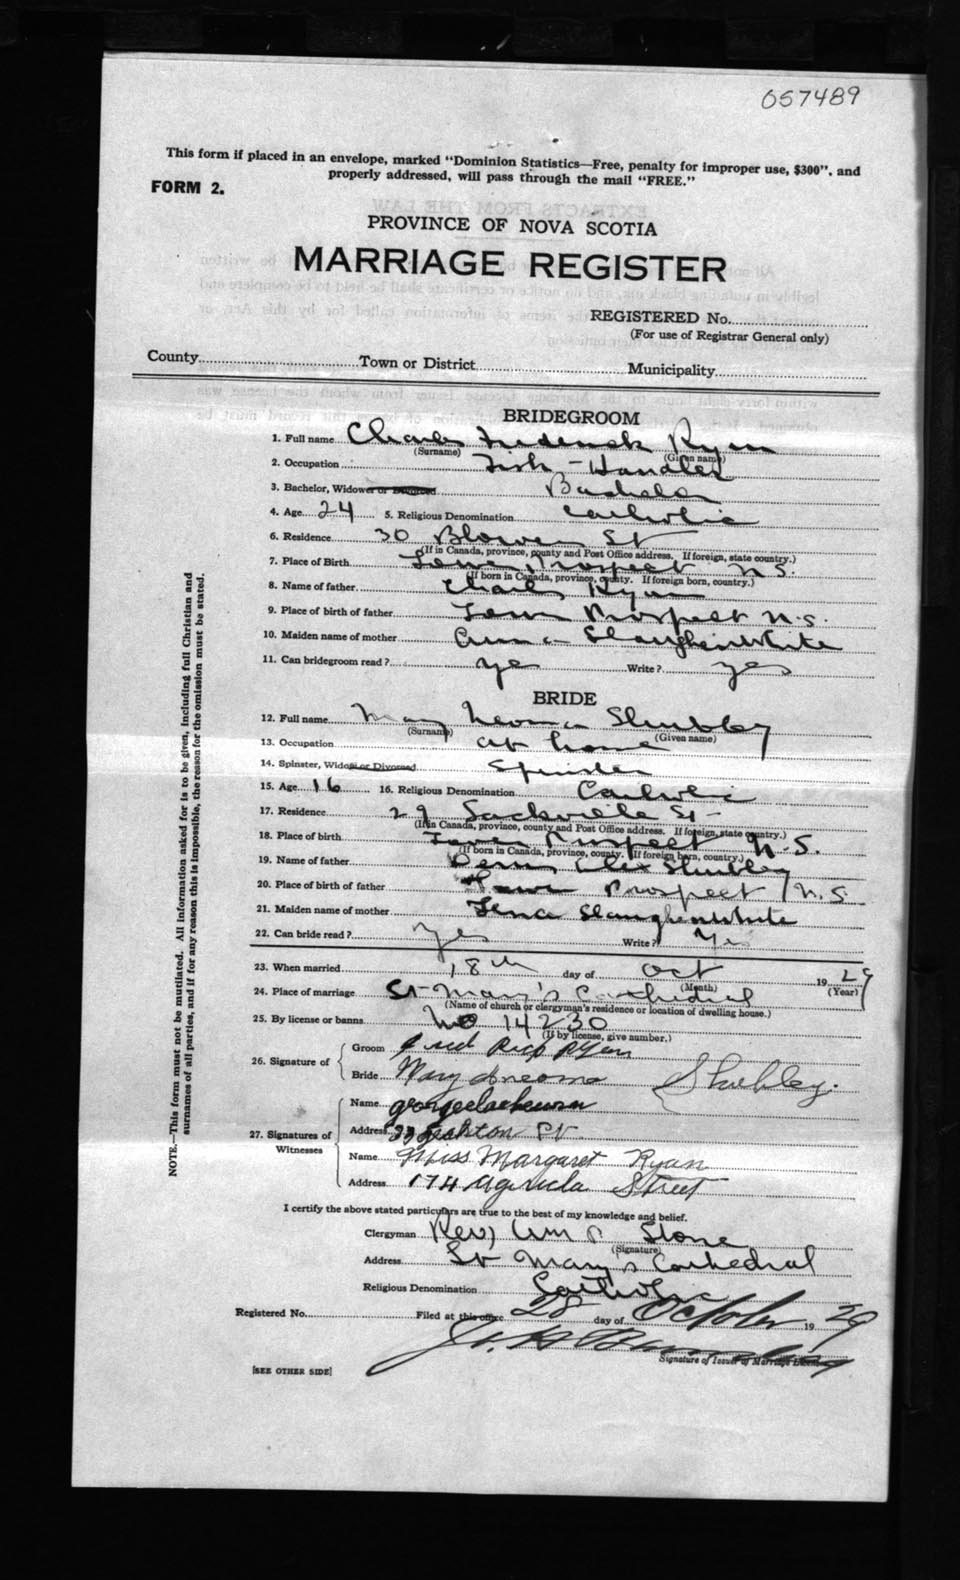 057489
This form if placed in an envelope, marked "Dominion Statistics—Free, penalty for improper use, $300", and
properly addressed, will pass through the mail "FREE."
FORM 2.
PROVINCE OF NOVA SCOTIA
MARRIAGE REGISTER
REGISTERED No.
(For use of Registrar General only)
County Town or District Municipality
BRIDEGROOM
1. Full name Charles Frederick Ryan
(Surname) (Given name)
2. Occupation Fish-Handler
3. Bachelor, Widower or Divorced Bachelor
4. Age 24 5. Religious Denomination Catholic
6. Residence 30 Blowers St
(If in Canada, province, county and Post Office address. If foreign, state country.)
7. Place of Birth Lower Prospect N.S.
(If born in Canada, province, county. If foreign born, country.)
8. Name of father Charles Ryan
9. Place of birth of father Lower Prospect N.S.
10. Maiden name of mother Anna SlaughenWhite
11. Can bridegroom read? yes Write? yes
BRIDE
12. Full name Mary Neoma Shubley
(Surname) (Given name)
13. Occupation at home
14. Spinster, Widow or Divorced Spinster
15. Age 16 16. Religious Denomination Catholic
17. Residence 29 Sackville St
(If in Canada, province, county and Post Office address. If foreign, state country.)
18. Place of birth Lower Prospect N.S.
(If born in Canada, province, county. If foreign born, country.)
19. Name of father Alex Shubley
20. Place of birth of father Lower Prospect N.S
21. Maiden name of mother Lena SlaughenWhite
22. Can bride read? Yes Write? Yes
23. When married 18th day of Oct 1929
(Month) (Year)
24. Place of marriage St Mary's Cathedral
(Name of church or clergyman's residence or location of dwelling house.)
25. By license or banns No 14230
(If by license, give number.)
26. Signature of Groom Fred Ryan
Bride Mary Shubley.
27. Signatures of Witnesses Name george
Address St.
Name Miss Margaret Ryan
Address 174 Agricola Street
I certify the above stated particulars are true to the best of my knowledge and belief.
Clergyman Rev Wm P Stone
(Signature)
Address St Mary's Cathedral
Religious Denomination Catholic
Registered No. Filed at this office 28 day of October 1929
Signature of Issuer of Marriage License
[SEE OTHER SIDE]
NOTE.—This form must not be mutilated. All information asked for is to be given, including full Christian and
surnames of all parties, and if for any reason this is impossible, the reason for the omission must be stated.